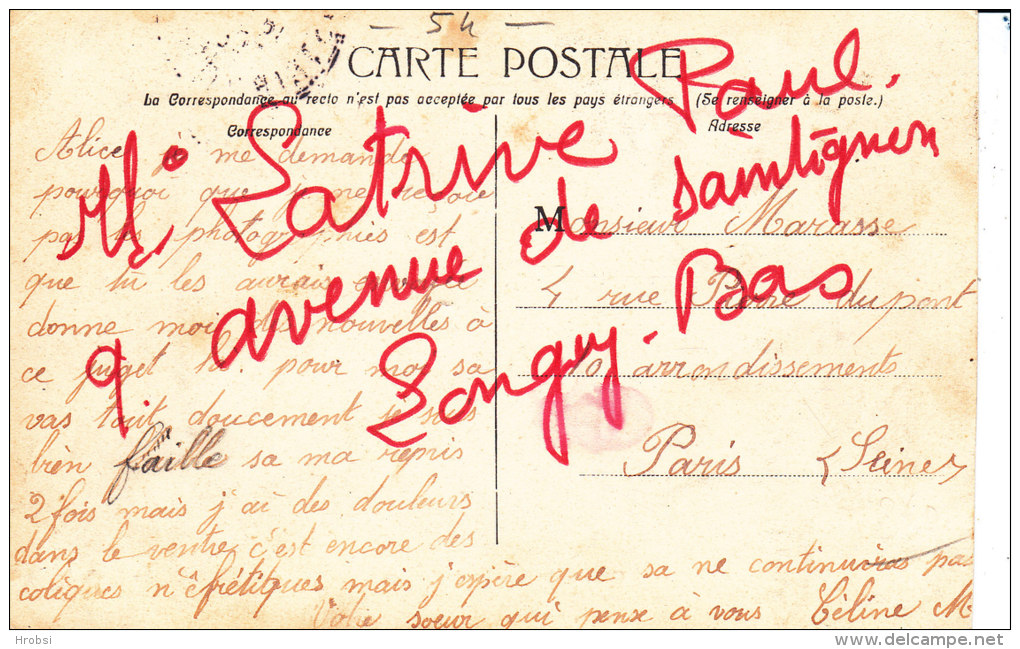 54
CARTE POSTALE
La Correspondance au recto n'est pas acceptée par tous les pays étrangers (Se renseigner à la poste.)
Correspondance
Adresse
Alice je me demande
pourquoi que je ne reçoie
pas les photographies est
que tu les aurais
donne moi des nouvelles à
ce sujet là. pour moi sa
vas tout doucement je suis
bien faille sa ma repris
2 fois mais j'ai des douleurs
dans le ventre c'est encore des
coliques n'éfrétiques mais j'espère que sa ne continuras pas
Votre soeur qui pense à vous Céline M
Monsieur Marasse
4 rue Pierre dupont
10 arrondissements
Paris (Seine)
Mr Latrive Paul.
9. avenue de Saintignon
Longwy-Bas
Hrobsi
www.delcampe.net